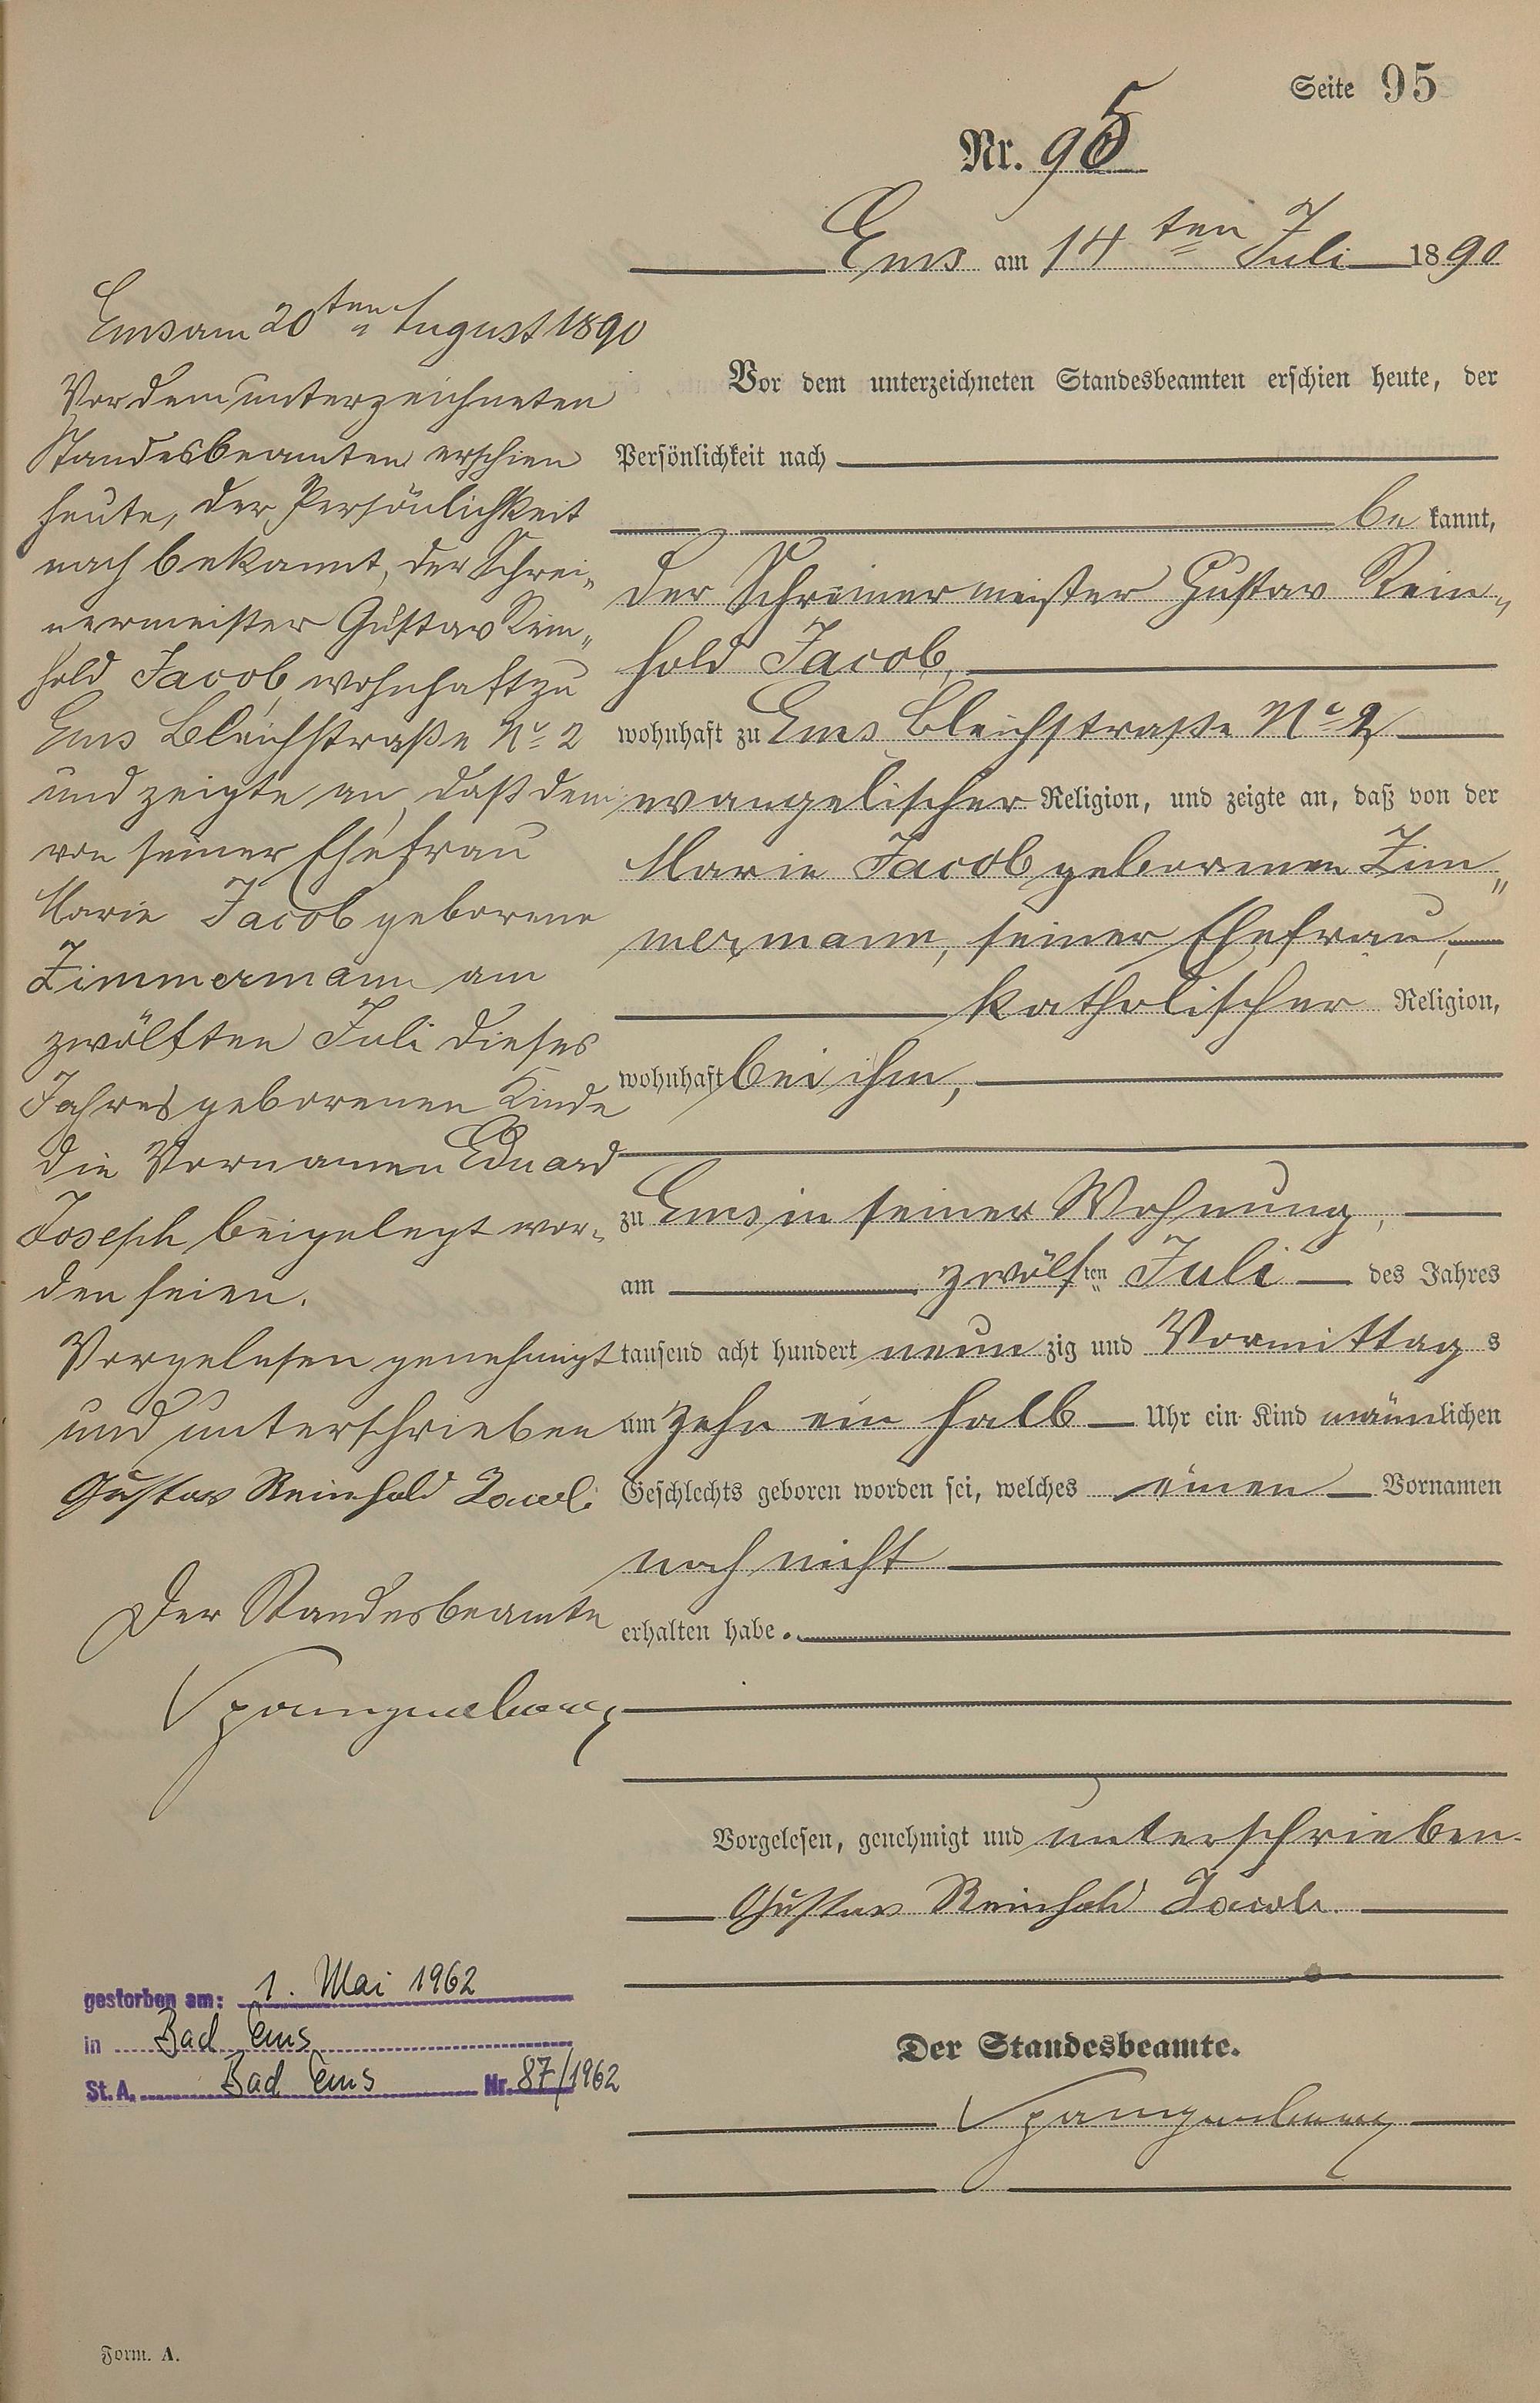 Seite 95
Nr. 95
Ems am 14ten Juli 1890
Vor dem unterzeichneten Standesbeamten erschien heute, der
Persönlichkeit nach
be kannt,
der Schreinermeister Gustav Rein„
hold Jacob,
wohnhaft zu Ems Bleichstraße No 2,
evangelischer Religion, und zeigte an, daß von der
Marie Jacob geborenen Zim„
mermann, seiner Ehefrau,
katholischer Religion,
wohnhaft bei ihm,
zu Ems in seiner Wohnung,
am zwölften Juli des Jahres
tausend acht hundert neun zig und Vormittag s
um zehn ein halb Uhr ein Kind männlichen
Geschlechts geboren worden sei, welches einen Vornamen
noch nicht
erhalten habe.
Vorgelesen, genehmigt und unterschrieben.
Gustav Reinhold Jacob.
Der Standesbeamte.
Spangenberg
Ems am 20ten August 1890
Vor dem unterzeichneten
Standesbeamten erschien
heute, der Persönlichkeit
nach bekannt, der Schrei„
nermeister Gustav Rein„
hold Jacob, wohnhaft zu
Ems Bleichstraße No 2
und zeigte an, daß dem
von seiner Ehefrau
Marie Jacob geborene
Zimmermann am
zwölften Juli dieses
Jahres geborenen Kinde
die Vornamen Eduard
Joseph beigelegt wor„
den seien.
Vorgelesen genehmigt
und unterschrieben
Gustav Reinhold Jacob
Der Standesbeamte
Spangenberg
gestorben am: 1. Mai 1962
in Bad Ems
St. A. Bad Ems Nr. 87/1962
Form. A.